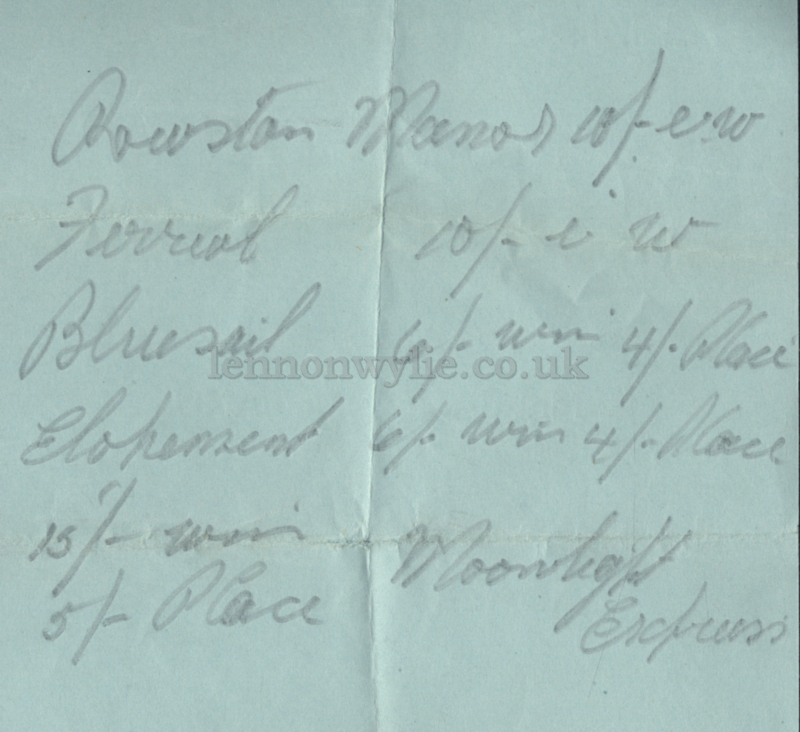 Rowston Manor 10/- e.w
Ferriol 10/- e w
Bluesail 6/- win 4/- Place
lennonwylie.co.uk
Elopement 6/- win 4/- Place
15/- win Moonlight
5/- Place Express